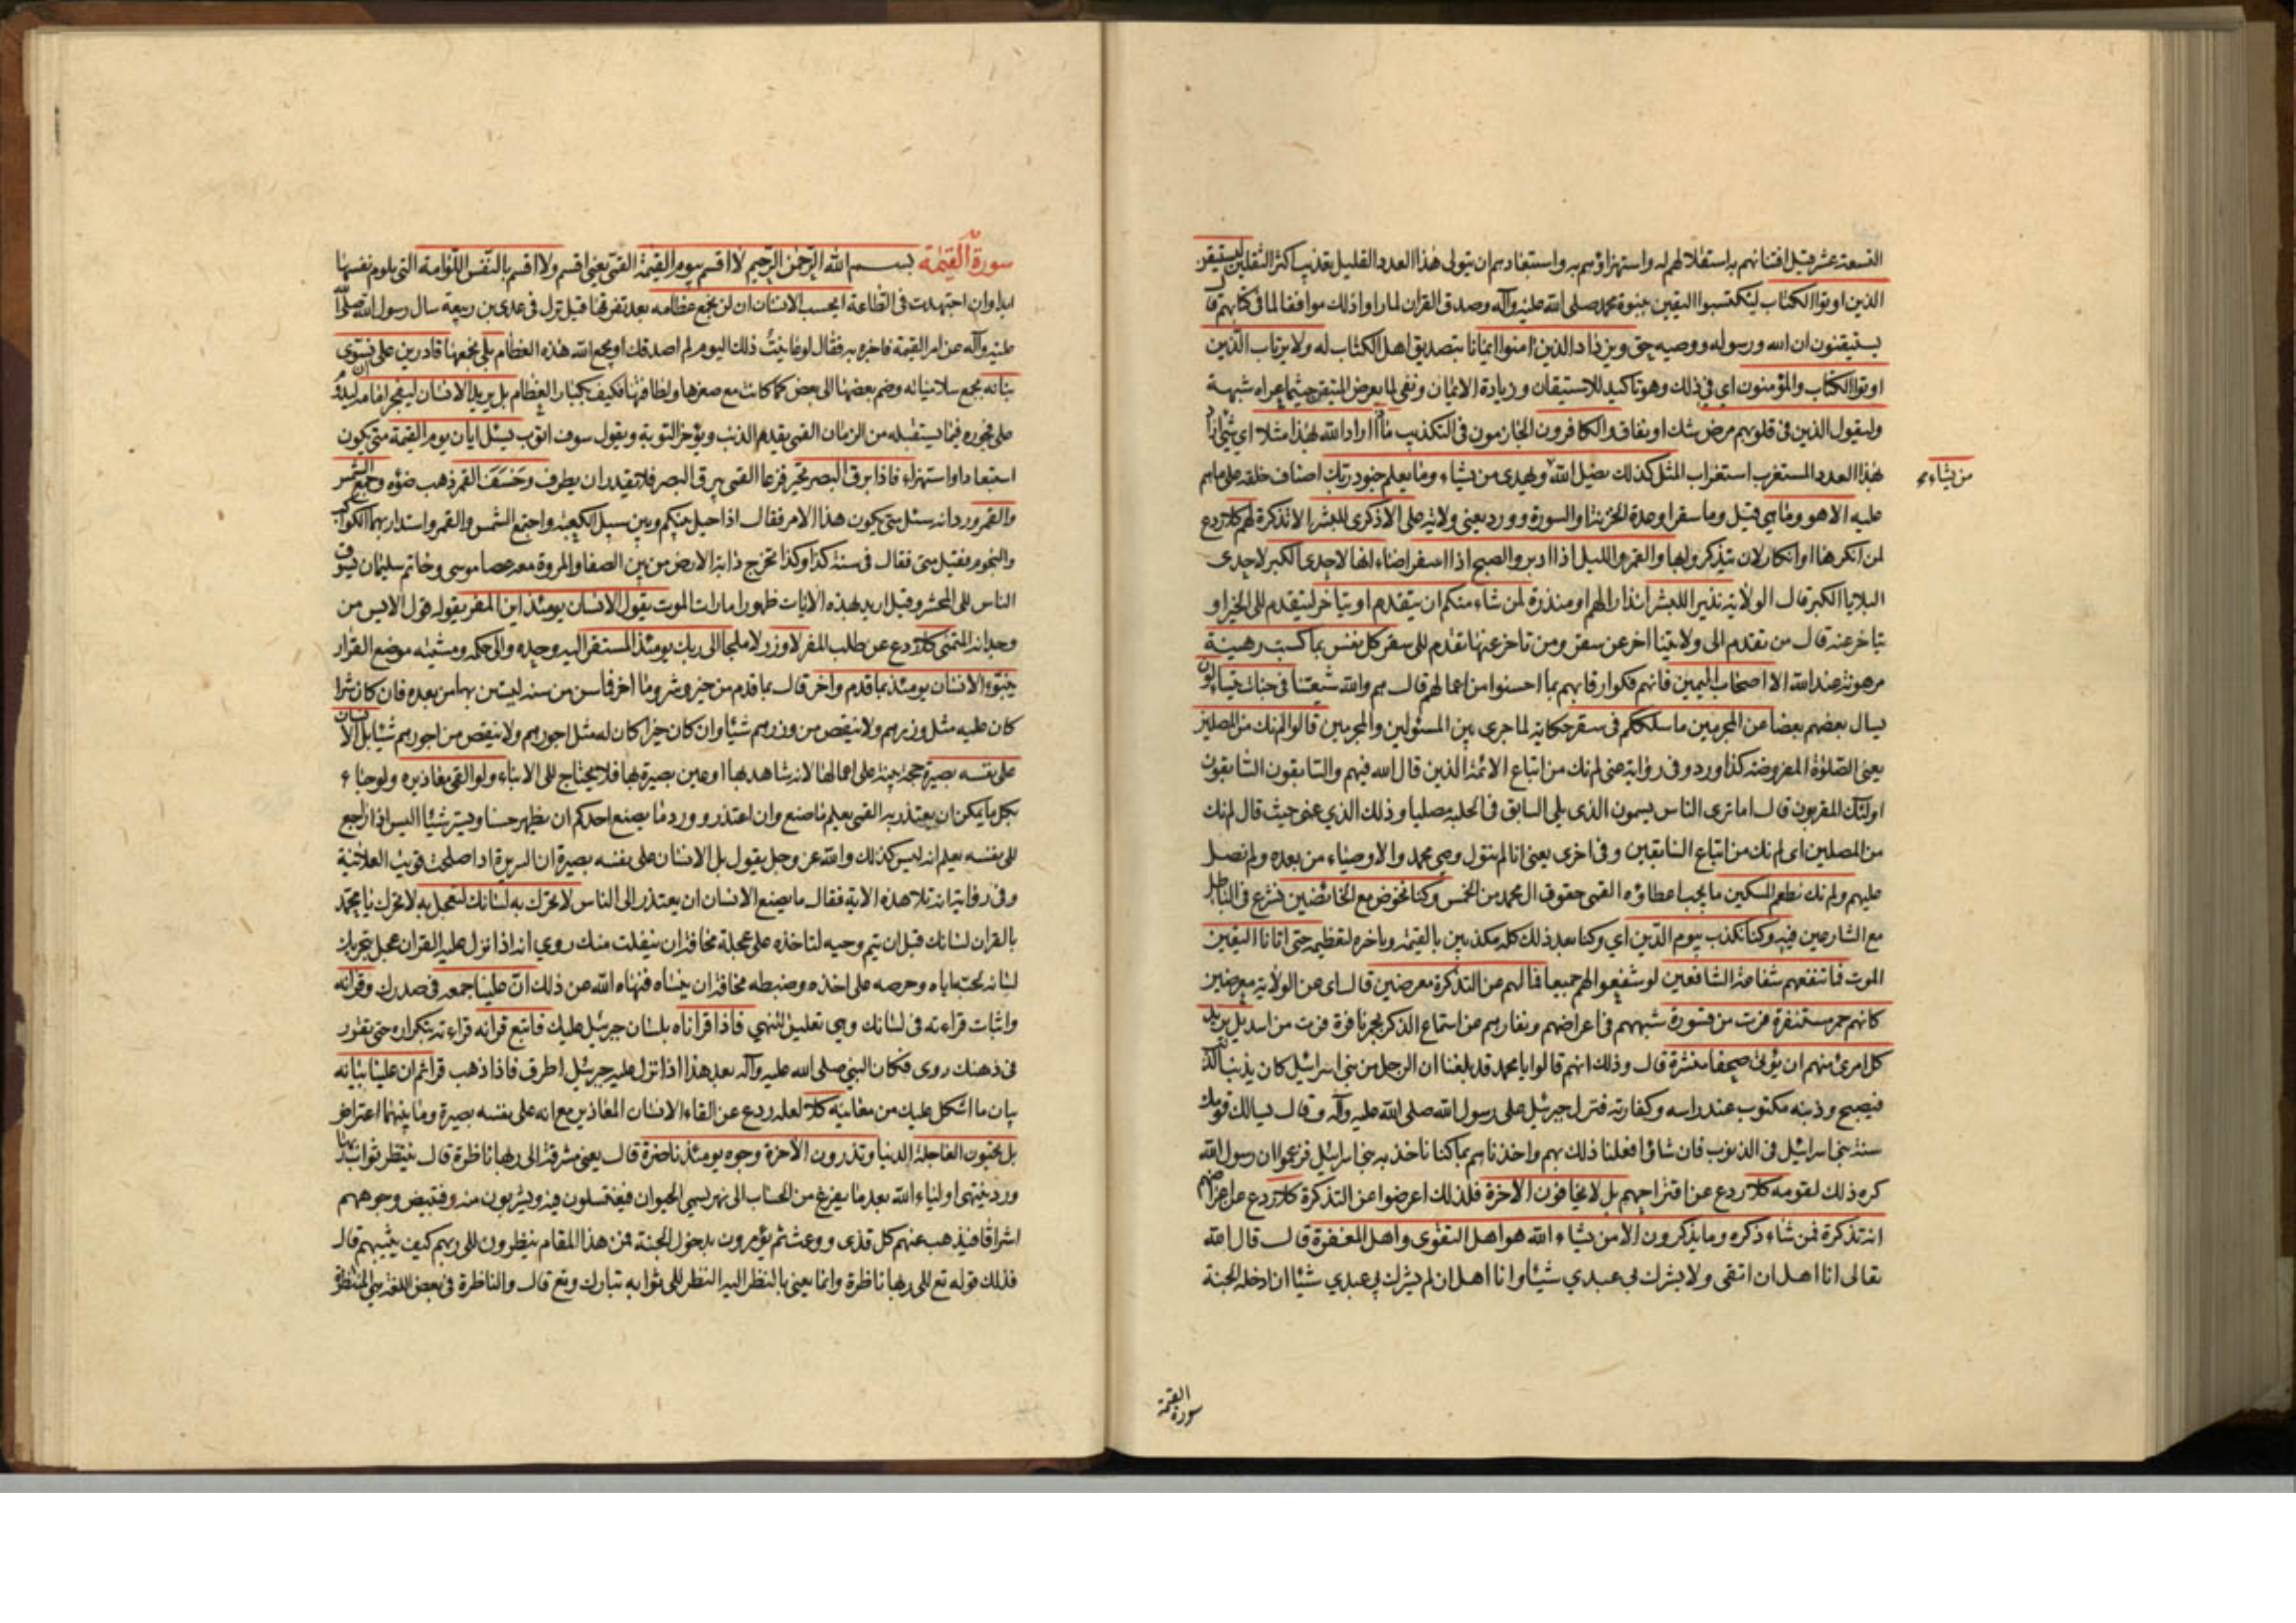 التسعة عشر قيل افتتانهم به استقلالهم له واستهزاؤهم به واستبعادهم ان يتولى هذا العدد القليل تعذيب اكثر الثقلين ليستيقن
الذين اوتوا الكتاب ليكتسبوا اليقين بنبوة محمد صلى الله عليه وآله وصدق القران لما راوا ذلك موافقا لما في كتابهم قال
يستيقنون ان الله ورسوله ووصيه حق ويزداد الذين امنوا ايمانا بتصديق اهل الكتاب له ولا يرتاب الذين
اوتوا الكتاب والمؤمنون اي في ذلك وهو تاكيد للاستيقان وزيادة الايمان ونفي لما يعرض المتيقن حيثما عراه شبهة
وليقول الذين في قلوبهم مرض شك او نفاق والكافرون الجازمون في التكذيب ماذا اراد الله بهذا مثلا اي شئ اراد
بهذا العدد المستغرب استغراب المثل كذلك يضل الله ويهدي من يشاء وما يعلم جنود ربك اصناف خلقه على ماهم
من يشاء
عليه الا هو وما هي قيل وما سقر او عدة الخزنة او السورة وورد يعني ولاية على الا ذكرى للبشر الا تذكرة لهم كلا ردع
لمن انكرها او انكار لان يتذكروا بها والقمر والليل اذا ادبر والصبح اذا اسفر اضاء انها لاحدى الكبر لاحدى
البلايا الكبر قال الولاية نذيرا للبشر انذارا لهم او منذرة لمن شاء منكم ان يتقدم او يتاخر ليتقدم الى الخير او
يتاخر عنه قال من تقدم الى ولايتنا اخر عن سقر ومن تاخر عنها تقدم الى سقر كل نفس بما كسبت رهينة
مرهونة عند الله الا اصحاب اليمين فانهم فكوا رقابهم بما احسنوا من اعمالهم قال هم والله شيعتنا في جنات يتسائلون
يسال بعضهم بعضا عن المجرمين ما سلككم في سقر حكاية لما جرى بين المسئولين والمجرمين قالوا لم نك من المصلين
يعني الصلوة المفروضة كذا ورد وفي رواية عنى لم نك من اتباع الائمة الذين قال الله فيهم والسابقون السابقون
اولئك المقربون قال اما ترى الناس يسمون الذي يلي السابق في الحلبة مصليا وذلك الذي عنى حيث قال لم نك
من المصلين اى لم نك من اتباع السابقين وفي اخرى يعني انا لم نتول وصي محمد والاوصياء من بعده ولم نصل
عليهم ولم نك نطعم المسكين ما يجب اعطاؤه القمي حقوق ال محمد من الخمس وكنا نخوض مع الخائضين نشرع في الباطل
مع الشارعين فيه وكنا نكذب بيوم الدين اي وكنا بعد ذلك كله مكذبين بالقيمة وتاخيره لتعظيمه حتى اتانا اليقين
الموت فما تنفعهم شفاعة الشافعين لو شفعوا لهم جميعا فما لهم عن التذكرة معرضين قال اى عن الولاية معرضين
كانهم حمر مستنفرة فرت من قسورة شبههم في اعراضهم ونفارهم عن استماع الذكر بحمر نافرة فرت من اسد بل يريد
كل امرئ منهم ان يؤتى صحفا منشرة قال وذلك انهم قالوا يا محمد قد بلغنا ان الرجل من بني اسرائيل كان يذنب الذنب
فيصبح وذنبه مكتوب عند راسه وكفارته فنزل جبرئيل على رسول الله صلى الله عليه وآله وقال يسالك قومك
سنة بني اسرائيل في الذنوب فان شاؤا فعلنا ذلك بهم واخذناهم بما كنا ناخذ به بني اسرائيل فزعموا ان رسول الله
كره ذلك لقومه كلا ردع عن اقتراحهم بل لا يخافون الاخرة فلذلك اعرضوا عن التذكرة كلا ردع عن اعراضهم
انه تذكرة فمن شاء ذكره وما يذكرون الا من يشاء الله هو اهل التقوى واهل المغفرة قال قال الله
تعالى انا اهل ان اتقى ولا يشرك بي عبدي شيئا وانا اهل ان لم يشرك بي عبدي شيئا ان ادخله الجنة
سورة القيمة
سورة القيمة بسم الله الرحمن الرحيم لا اقسم بيوم القيمة القمي يعني اقسم ولا اقسم بالنفس اللوامة التي تلوم نفسها
ابدا وان اجتهدت في الطاعة ايحسب الانسان ان لن نجمع عظامه بعد تفرقها قيل نزل في عدي بن ربيعة سال رسول الله صلى الله
عليه وآله عن امر القيمة فاخبره به فقال لو عاينت ذلك اليوم لم اصدقك او يجمع الله هذه العظام بلى نجمعها قادرين على ان نسوى
بنانه بجمع سلامياته وضم بعضها الى بعض كما كانت مع صغرها ولطافتها فكيف بكبار العظام بل يريد الانسان ليفجر امامه ليدوم
على فجوره فيما يستقبله من الزمان القمي يقدم الذنب ويؤخر التوبة ويقول سوف اتوب يسئل ايان يوم القيمة متى يكون
استبعادا واستهزاء فاذا برق البصر تحير فزعا القمي يبرق البصر فلا يقدر ان يطرف وخسف القمر ذهب ضوؤه وجمع الشمس
والقمر ورد انه سئل متى يكون هذا الامر فقال اذا حيل بينكم وبين سبيل الكعبة واجتمع الشمس والقمر واستدار بهما الكواكب
والنجوم فقيل متى فقال في سنة كذا وكذا تخرج دابة الارض من بين الصفا والمروة معه عصا موسى وخاتم سليمان تسوق
الناس الى المحشر وقيل اريد بهذه الايات ظهور امارات الموت يقول الانسان يومئذ اين المفر يقوله قول الايس من
وجدانه المتمنى كلا ردع عن طلب المفر لا وزر لا ملجأ الى ربك يومئذ المستقر اليه وحده والى حكمه ومشيته موضع القرار
ينبؤ الانسان يومئذ بما قدم واخر قال بما قدم من خير وشر وما اخر فما سن من سنة ليستن بها من بعده فان كان شرا
كان عليه مثل وزرهم ولا ينقص من وزرهم شيئا وان كان خيرا كان له مثل اجورهم ولا ينقص من اجورهم شيئا بل الانسان
على نفسه بصيرة حجة بينة على اعمالها لانه شاهد بها او عين بصيرة بها فلا يحتاج الى الانباء ولو القى معاذيره ولو جاء
بكل ما يمكن ان يعتذر به القمي يعلم ما صنع وان اعتذر وورد ما يصنع احدكم ان يظهر حسنا ويستر شيئا اليس اذا راجع
الى نفسه يعلم انه ليس كذلك والله عز وجل يقول بل الانسان على نفسه بصيرة ان السريرة اذا صلحت قويت العلانية
وفي رواية انه تلا هذه الاية فقال ما يصنع الانسان ان يعتذر الى الناس لا تحرك به لسانك لتعجل به لا تحرك يا محمد
بالقران لسانك قبل ان يتم وحيه لتاخذه على عجلة مخافة ان ينفلت منك روي انه اذا نزل عليه القران عجل بتحريك
لسانه لحبه اياه وحرصه على اخذه وضبطه مخافة ان ينساه فنهاه الله عن ذلك ان علينا جمعه في صدرك وقرانه
واثبات قراءته في لسانك وهي تعليل للنهي فاذا قراناه بلسان جبرئيل عليك فاتبع قرانه قراءته بتكراره حتى يتقرر
في ذهنك روى فكان النبي صلى الله عليه وآله بعد هذا اذا نزل عليه جبرئيل اطرق فاذا ذهب قرا ثم ان علينا بيانه
بيان ما اشكل عليك من معانيه كلا لعله ردع عن القاء الانسان المعاذير مع انه على نفسه بصيرة وما بينهما اعتراض
بل تحبون العاجلة الدنيا وتذرون الاخرة وجوه يومئذ ناضرة قال يعني مشرقة الى ربها ناظرة قال ينتظر ثواب ربها
ورد ينتهي اولياء الله بعد ما يفرغ من الحساب الى نهر يسمى الحيوان فيغتسلون فيه ويشربون منه وفتبيض وجوههم
اشراقا فيذهب عنهم كل قذى ووعث ثم يؤمرون بدخول الجنة فمن هذا المقام ينظرون الى ربهم كيف يثيبهم قال
فذلك قوله تع الى ربها ناظرة وانما يعني بالنظر اليه النظر الى ثوابه تبارك وتع قال والناظرة في بعض اللغة هي المنتظرة